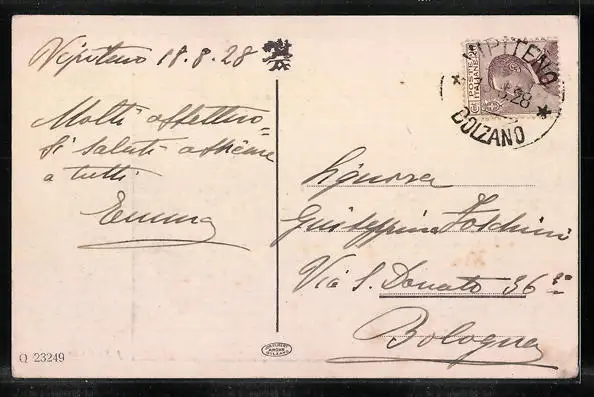 Vipiteno 18.8.28
Molti affettuo=
si saluti assieme
a tutti
Emma
POSTE ITALIANE
VIPITENO
8.28
BOLZANO
Signora
Giuseppina Foschini
Via S. Donato 36
Bologna
Q 23249